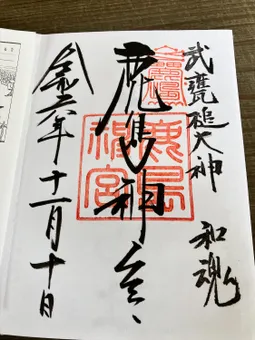 武甕槌大神 和魂
鹿島神宮
鹿島
神宮
令和六年十一月十日